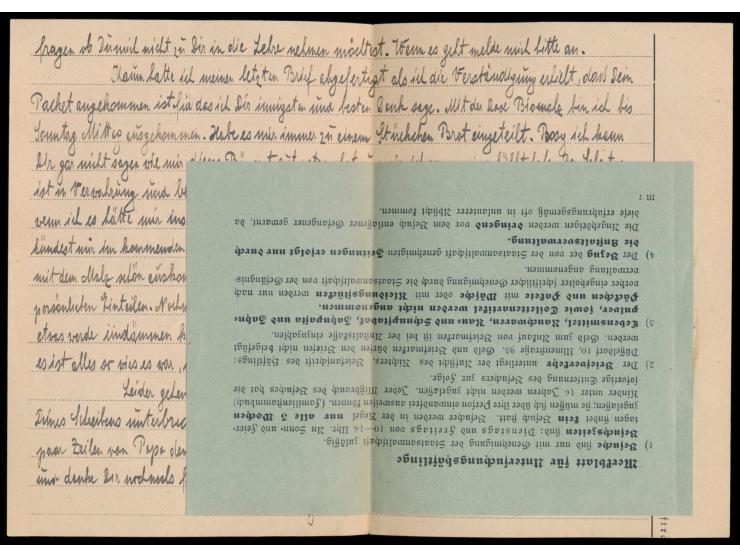 fragen ob Du mich nicht zu Dir in die Lehre nehmen möchtest. Wenn es geht melde mich bitte an.
Kaum hatte ich meinen letzten Brief abgefertigt als ich die Verständigung erhielt, dass Dein
Packet angekommen ist für das ich Dir innigsten und besten Dank sage. Mit der Dose Biomalz bin ich bis
Sonntag Mittag ausgekommen. Habe es mir immer zu einem Stückchen Brot eingeteilt. ich kann
Dir gar nicht sagen wie mir
ist in Verwahrung und
wenn ich es hätte mir
kündest mir im kommenden
mit dem Malz schön auskom
persönlichen Einteilen.
etwas werde eindämmen
es ist alles so wies es war,
Leider gehen
Deines Schreibens unterbrec
paar Zeilen von Papa den
und danke Dir nochmals
Merkblatt für Untersuchungshäftlinge
1) Besuche sind nur mit Genehmigung der Staatsanwaltschaft zulässig.
Besuchszeiten sind: Dienstags und Freitags von 10—16 Uhr. An Sonn- und Feier-
tagen findet kein Besuch statt. Besucher werden in der Regel nur alle 3 Wochen
zugelassen; sie müssen sich über ihre Person einwandfrei ausweisen können. (Familienstammbuch)
Kinder unter 16 Jahren werden nicht zugelassen. Jeder Mißbrauch des Besuches hat die
sofortige Entfernung des Besuchers zur Folge.
2) Der Briefverkehr unterliegt der Aufsicht des Richters. Briefanschrift des Häftlings:
Düsseldorf 10, Ulmenstraße 95. Geld und Briefmarken dürfen den Briefen nicht beigefügt
werden. Geld zum Ankauf von Briefmarken ist bei der Anstaltskasse einzuzahlen.
3) Lebensmittel, Rauchwaren, Kau- und Schnupftabak, Zahnpasta und Zahn-
pulver, sowie Toilettenartikel werden nicht angenommen.
Päckchen und Pakete mit Wäsche oder mit Kleidungsstücken werden nur nach
vorher eingeholter schriftlicher Genehmigung durch die Staatsanwaltschaft von der Gefängnis-
verwaltung angenommen.
4) Der Bezug der von der Staatsanwaltschaft genehmigten Zeitungen erfolgt nur durch
die Anstaltsverwaltung.
Die Angehörigen werden dringend vor dem Besuch entlassener Gefangener gewarnt, da
diese erfahrungsgemäß oft in unlauterer Absicht kommen.